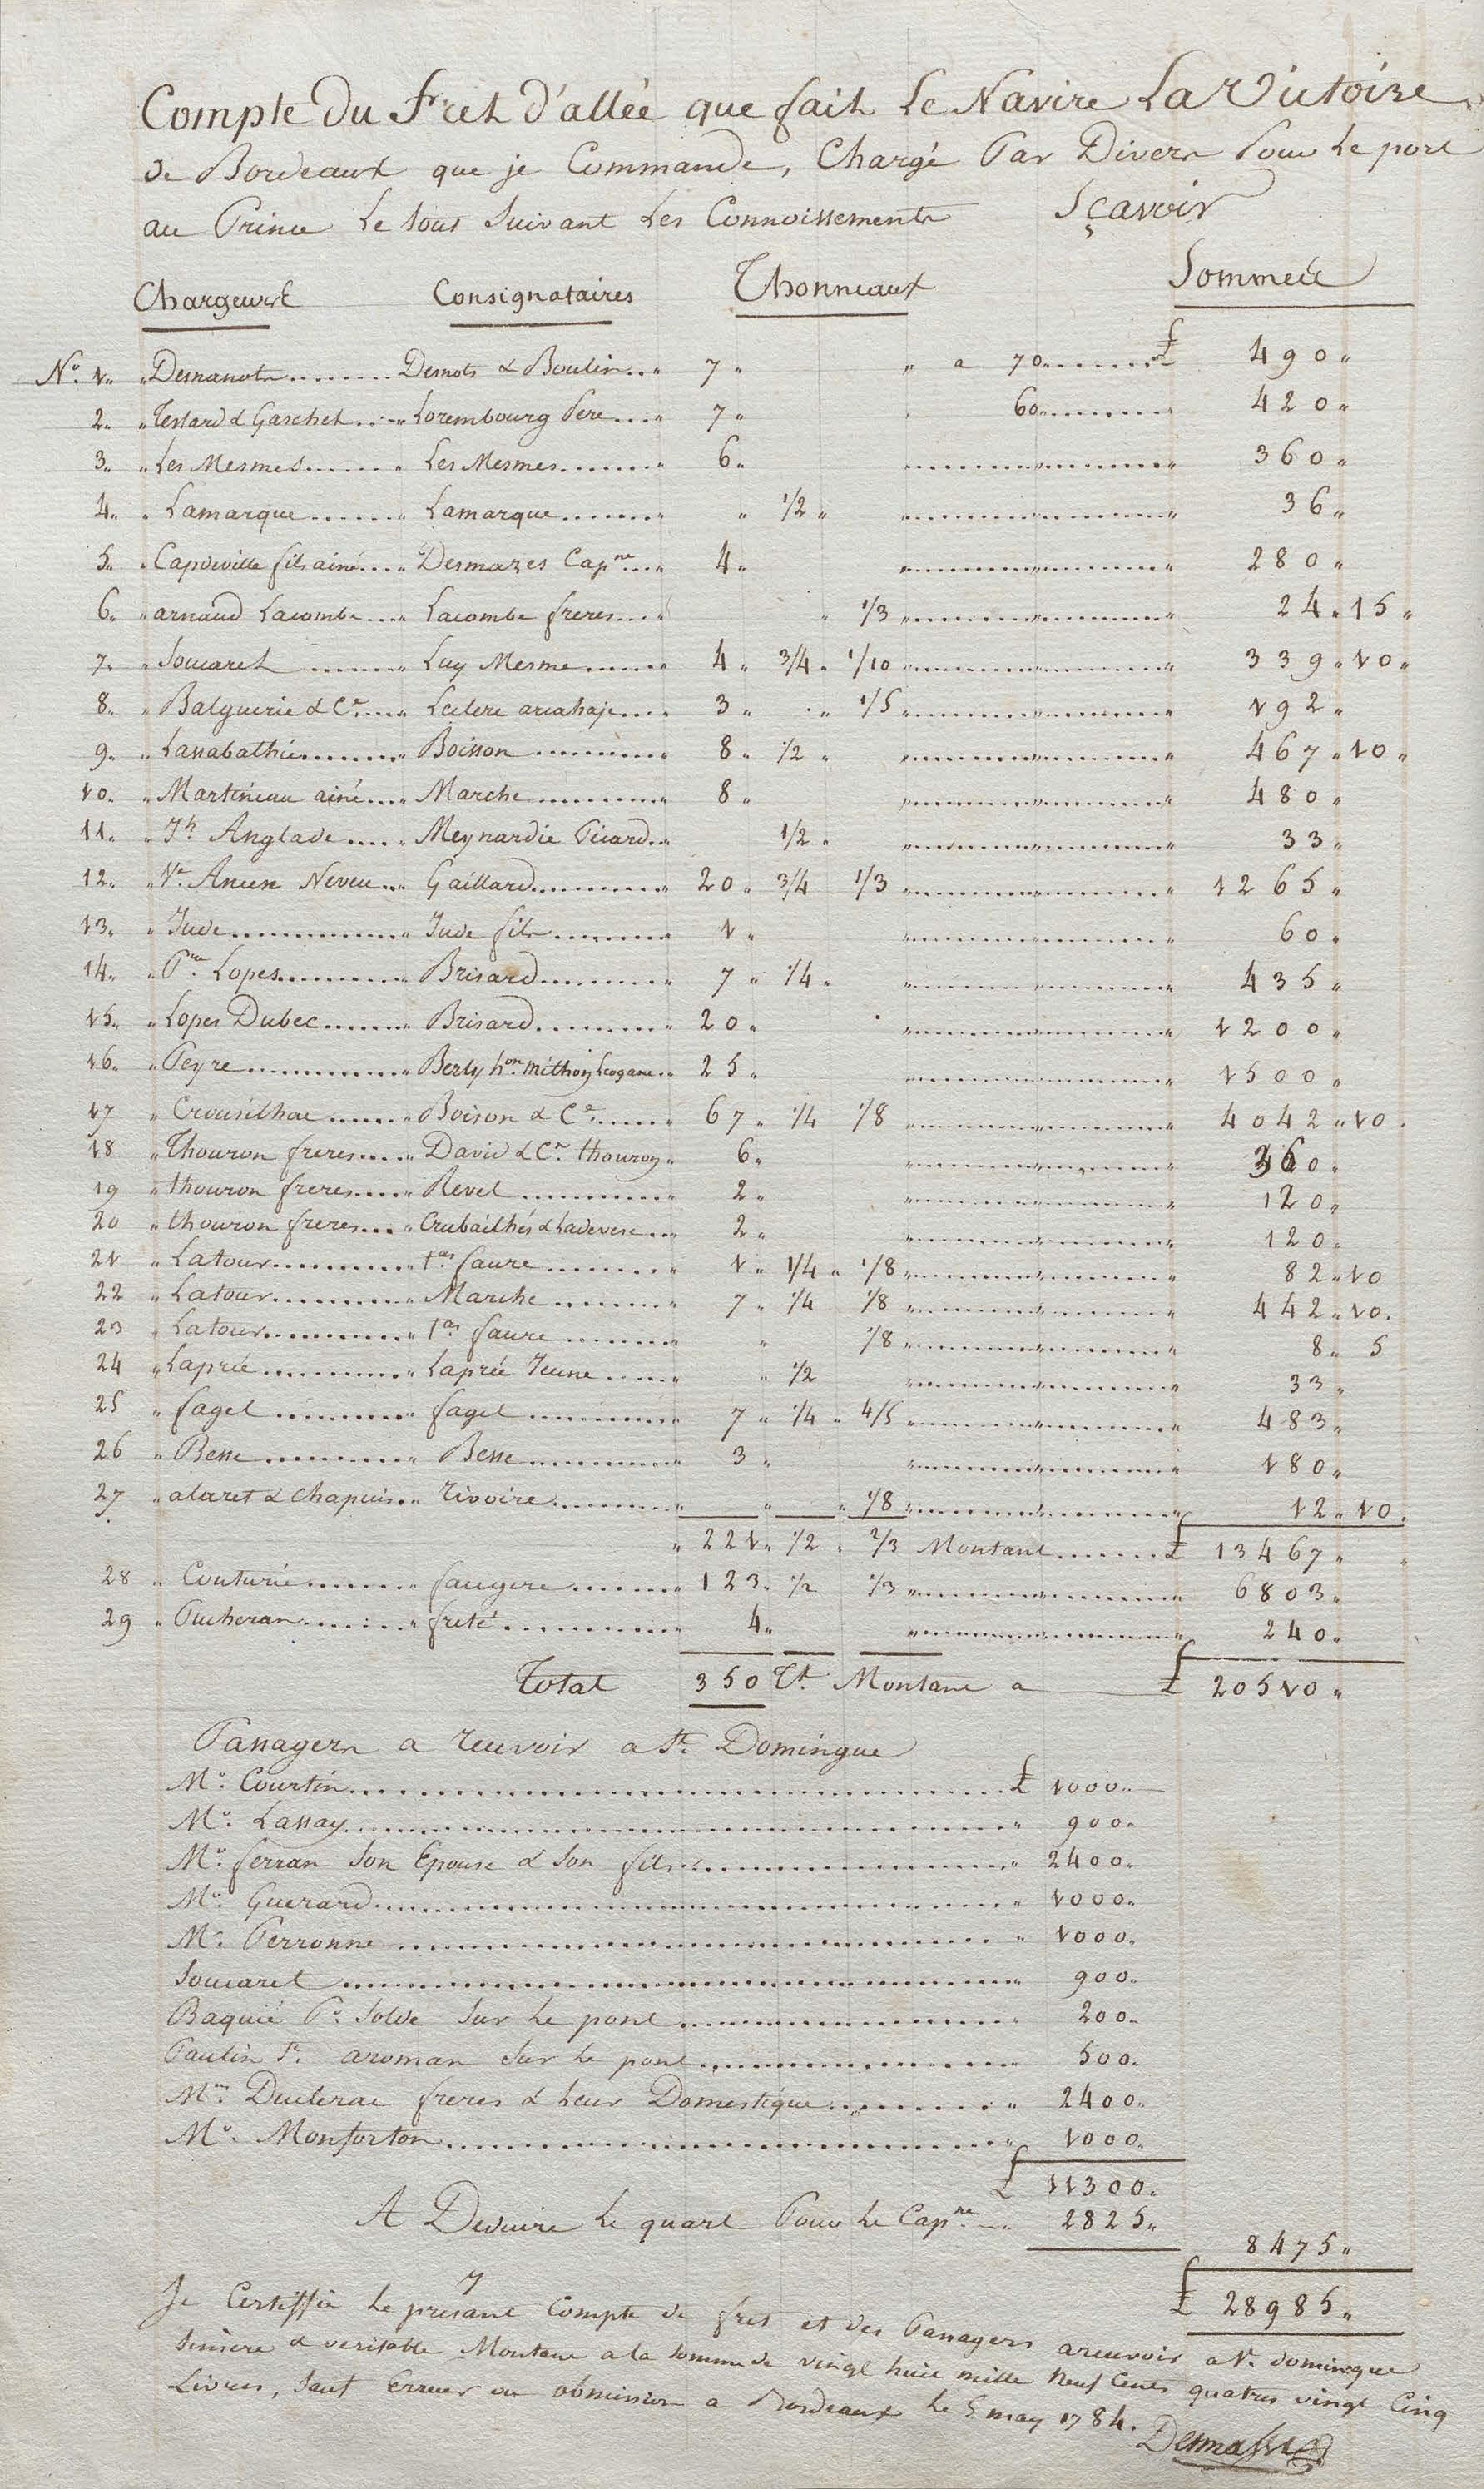 Compte Du Fret d'allée que fait Le Navire La Victoire
de Bordeaux que je Commande, Chargé Par Divers Pour Le port
au Prince Le tout Suivant Les Connoissements Sçavoir
Chargeurs Consignataires Thonneaux Sommes
No. 1. Desmanots Desnots & Boulin 7 a 70 ₤ 490
2. Testard & Gaschet Lorembourg Pere 7 60 420
3. Les Mesmes Les Mesmes 6 360
4. Lamarque Lamarque 1/2 36
5. Capdeville fils ainé Desmazes Capne 4 280
6. arnaud Lacombe Lacombe freres 1/3 24 15
7. Soucaret Luy Mesme 4 3/4 1/10 339 10
8. Balguerie & Ce Leclere arcahaje 3 1/5 192
9. Lassabathie Boisson 8 1/2 467 10
10. Martineau ainé Marche 8 480
11. Jh Anglade Meynardie Picard 1/2 33
12. Ve Ancen Neveu Gaillard 20 3/4 1/3 1265
13. Jude Jude fils 1 60
14. Pre Lopes Brisard 7 1/4 435
15. Lopes Dubec Brisard 20 1200
16. Peyre Berly hon. mithon Leogane 25 1500
17 Crousilhac Boison & Ce 67 1/4 1/8 4042 10
18 Thouron freres David & Ce thouron 6 360
19 thouron freres Revel 2 120
20 thouron freres Crubailhés & Ladevese 2 120
21 Latour faure 1 1/4 1/8 82 10
22 Latour Marche 7 1/4 1/8 442 10
23 Latour faure 1/8 8 5
24 Laprée Laprée Jeune 1/2 33
25 fagel fagel 7 1/4 4/5 483
26 Besse Besse 3 180
27 alaret & Chapuis rivoire 1/8 12 10
221 1/2 2/3 Montant ₤ 13467
28 Couturié faugere 123 1/2 1/3 6803
29 Pucheran freté 4 240
Total 350 Tx Montant a ₤ 20510
Passagers a recevoir a St. Domingue
Mr. Courtin ₤ 1000
Mr. Lassay 900
Mr. ferran Son Epouse & Son fils 2400
Mr. Guerard 1000
Mr. Perronne 1000
Soucaret 900
Baquié Pr. Solde Sur Le pont 200
Paulin Sr. aroman Sur Le pont 500
Mrs. Duclerac freres & Leur Domestique 2400
Mr. Monforton 1000
₤ 11300
A Deduire Le quart Pour Le Capne 2825
8475
₤ 28985
Je Certiffie Le presant Compte de fret et des Passagers arecevoir a St. domingue
Sincere & veritable Montant a la Somme de vingt huit mille Neuf Cents quatres vingt Cinq
Livres, Sauf Erreur ou obmission a Bordeaux Le 5 may 1784.